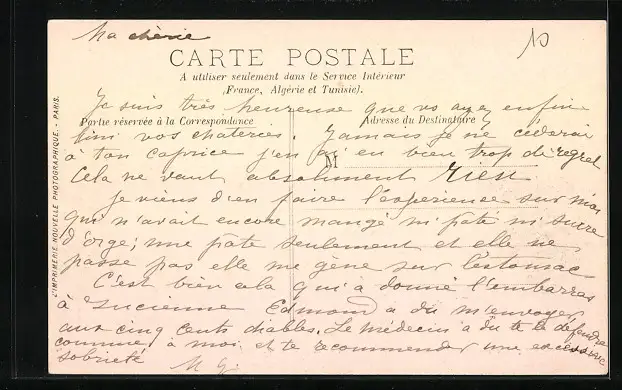 Ma chérie
10
CARTE POSTALE
A utiliser seulement dans le Service Intérieur
(France, Algérie et Tunisie).
Je suis très heureuse que vs ayez enfin
Partie réservée à la Correspondance
Adresse du Destinataire
fini vos chateries. Jamais je ne céderai
à ton caprice j'en ai eu bien trop de regret
M
Cela ne vaut absolument rien
Je viens d'en faire l'expérience sur moi
qui n'avait encore mangé ni pate ni sucre
d'orge; une pate seulement et elle ne
passe pas elle me gène sur l'estomac
C'est bien cela qui a donné l'embarras
à Lucienne Edmond a du m'envoyer
aux cinq cents diables. Le médecin a du te la défendre
comme à moi et te recommander une excessive
sobrieté M G.
L'IMPRIMERIE NOUVELLE PHOTOGRAPHIQUE. - PARIS.